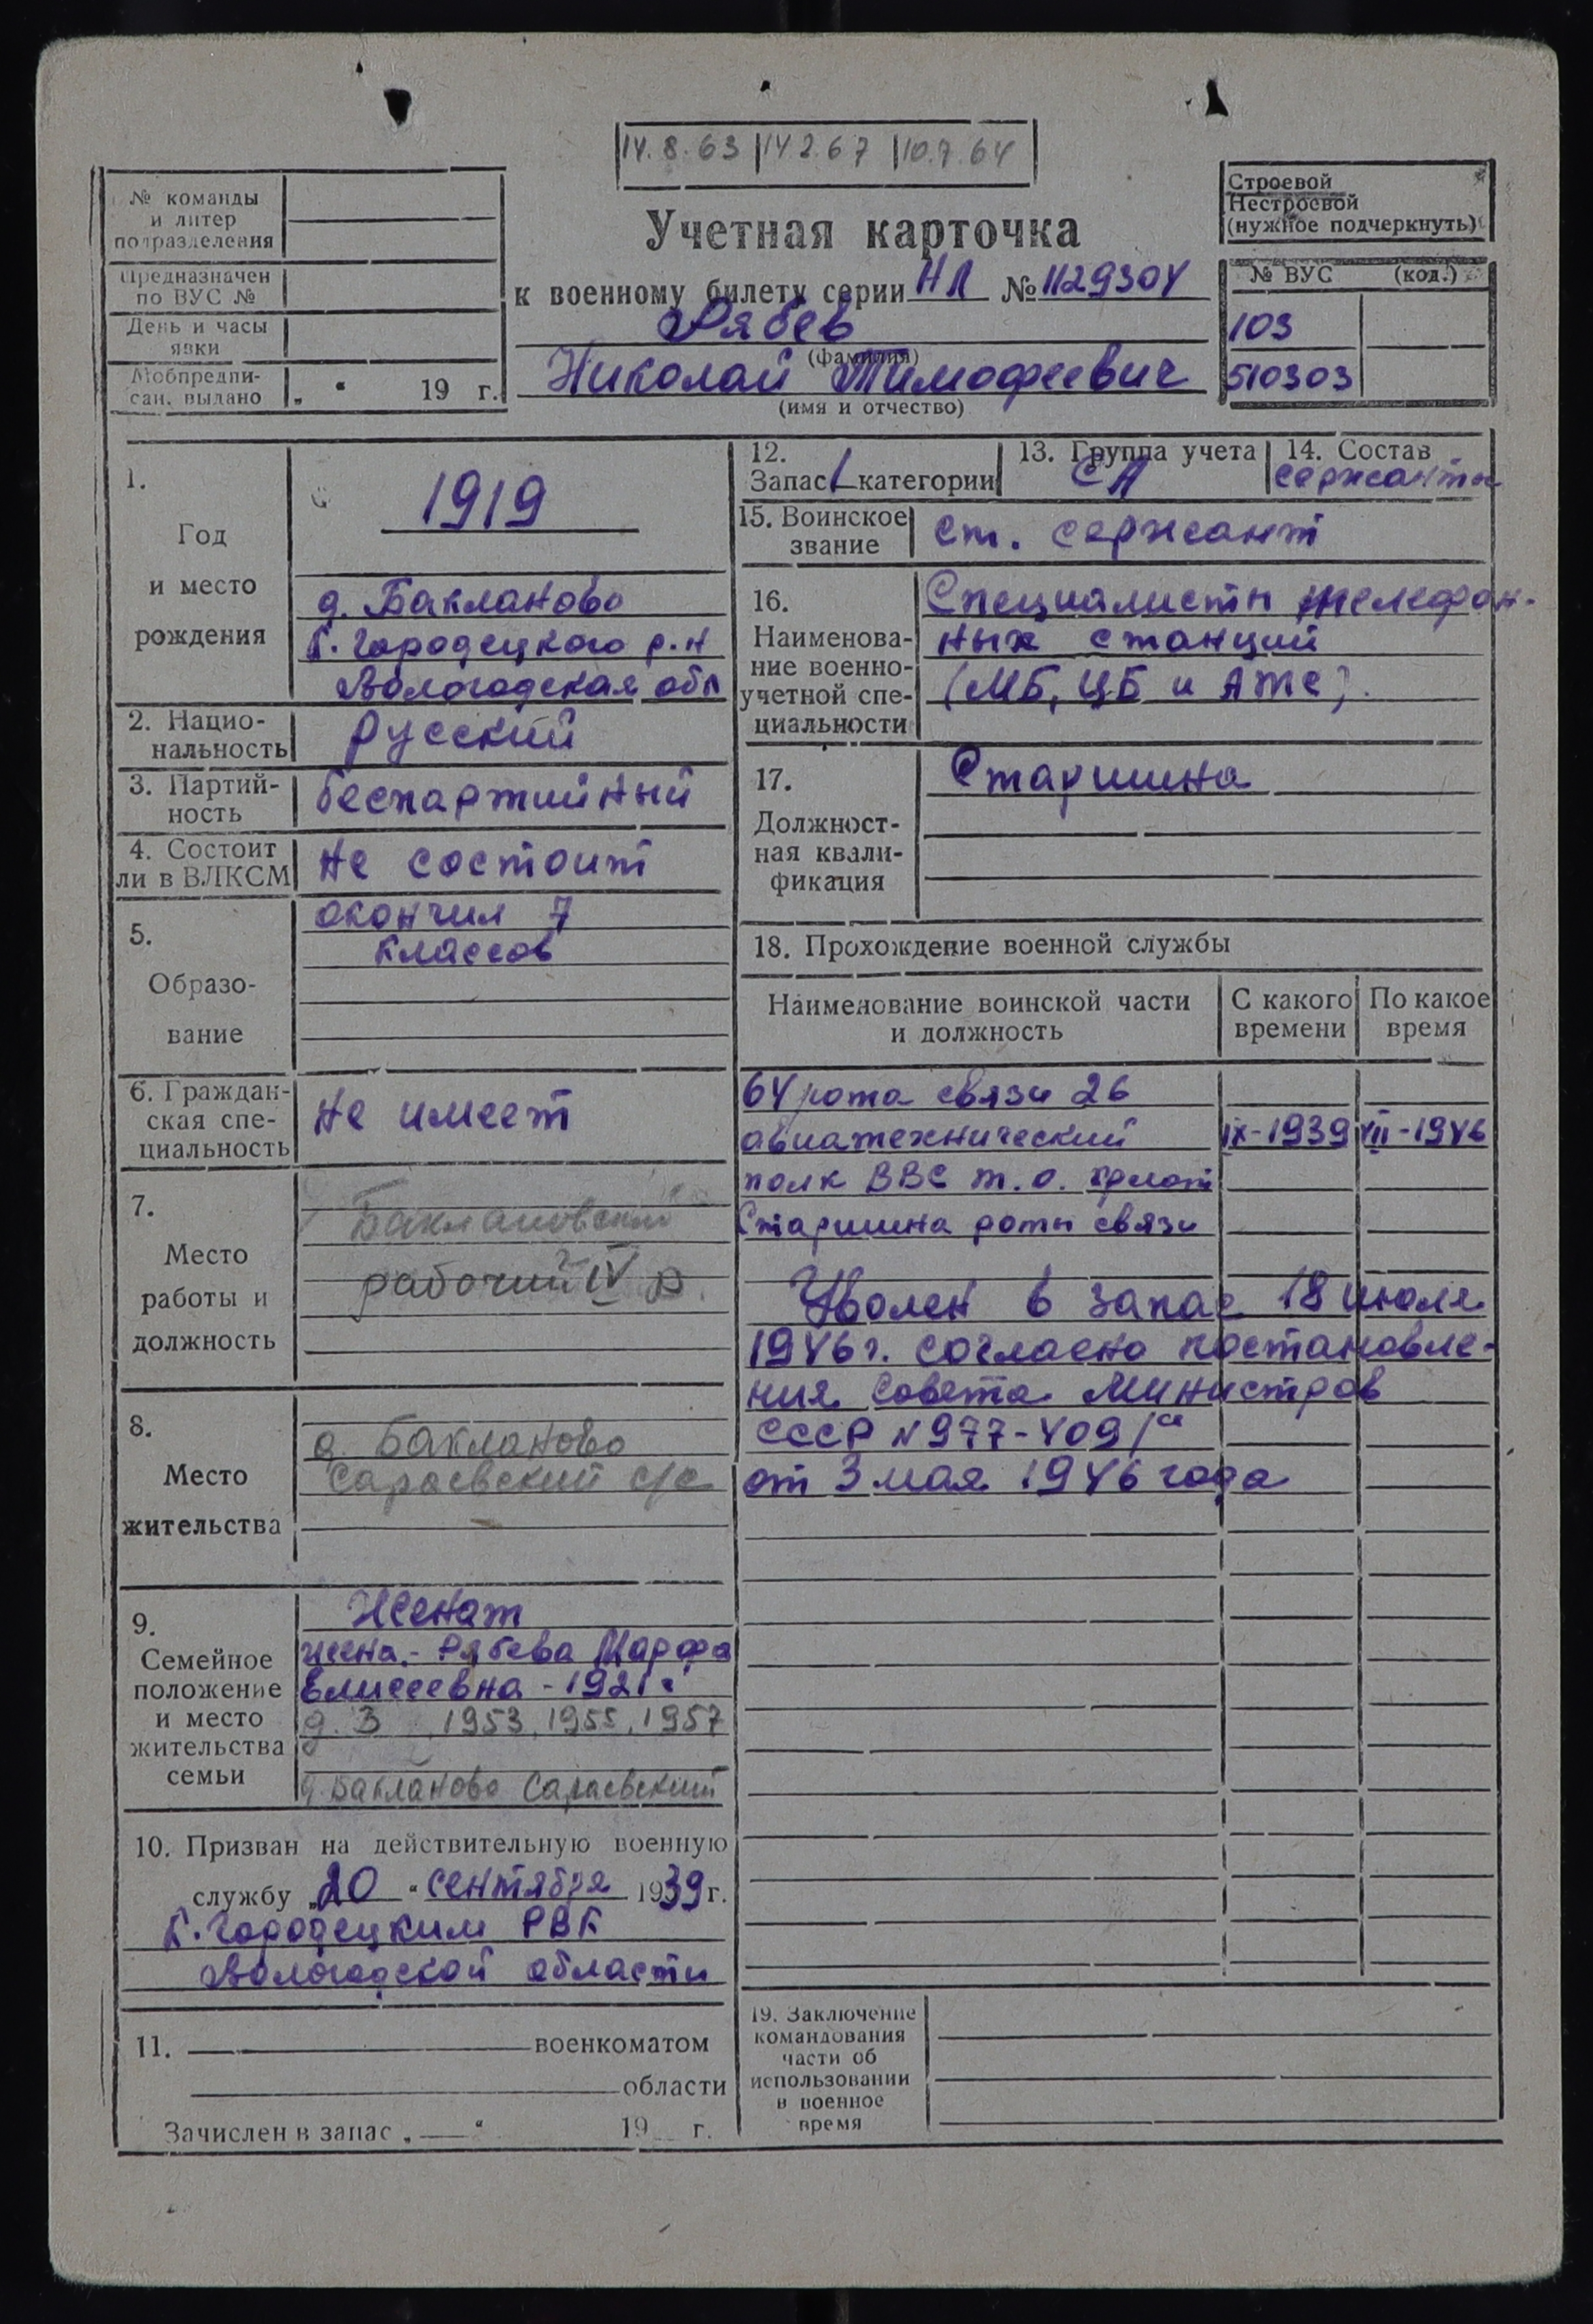 14.8.63 14.2.67 10.7.64
№ команды
и литер
подразделения
Предназначен
по ВУС №
День и часы
явки
Мобпредпи-
сан. выдано „ “ 19 г.
Учетная карточка
к военному билету серии НЛ № 1129304
Рябев
(фамилия)
Николай Тимофеевич
(имя и отчество)
Строевой
Нестроевой
(нужное подчеркнуть)
№ ВУС (код.)
103
510303
1.
Год
и место
рождения
1919
д. Бакланово
К. Городецкого р.н
Вологодская обл
2. Нацио-
нальность
русский
3. Партий-
ность
беспартийный
4. Состоит
ли в ВЛКСМ
не состоит
5.
Образо-
вание
окончил 7
классов
6. Граждан-
ская спе-
циальность
не имеет
7.
Место
работы и
должность
Баклановский
рабочий IV р.
8.
Место
жительства
д. Бакланово
Сараевский с/с
9.
Семейное
положение
и место
жительства
семьи
Женат
жена.- Рябева Марфа
Елисеевна - 1921г
д. 3 1953, 1955, 1957
д. Бакланово Сараевский
10. Призван на действительную военную
службу „20“ сентября 1939 г.
К. Городецким РВК
Вологодской области
11. военкоматом
области
Зачислен в запас „ “ 19 г.
12.
Запас 1 категории
13. Группа учета
СА
14. Состав
сержанты
15. Воинское
звание
ст. сержант
16.
Наименова-
ние военно-
учетной спе-
циальности
Специалисты телефон-
ных станций
(МБ, ЦБ и АТС).
17.
Должност-
ная квали-
фикация
Старшина
18. Прохождение военной службы
Наименование воинской части
и должность
С какого
времени
По какое
время
64 рота связи 26
авиатехнический IX-1939 VII-1946
полк ВВС т.о. флот
Старшина роты связи
Уволен в запас 18 июля
1946г. согласно постановле-
ния Совета Министров
СССР N 977-409/сс
от 3 мая 1946 года
19. Заключение
командования
части об
использовании
в военное
время